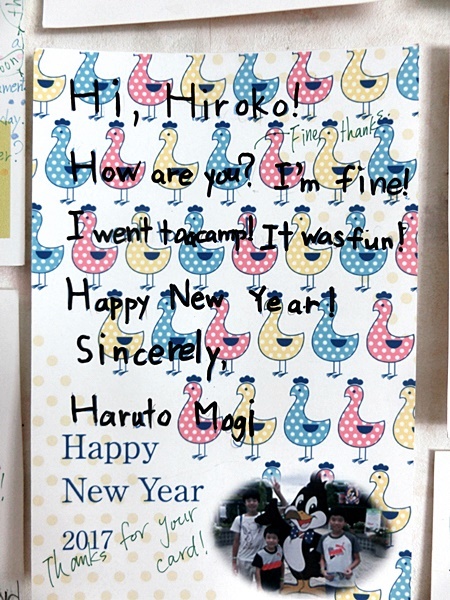 Hi, Hiroko!
Fine, thanks
How are you? I'm fine!
I went to a camp! It was fun!
Happy New Year!
Sincerely,
Haruto Mogi
Happy
New Year
2017
Thanks for your
card!